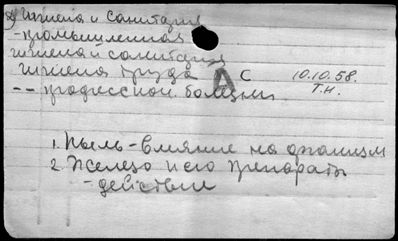 Гигиена и санитария
- промышленная
гигиена и санитария
гигиена труда
А С
10.10.58.
Т.Н.
-- професс.ион. болезни
1. Пыль - влияние на организм
2. Железо и его препараты
- действие